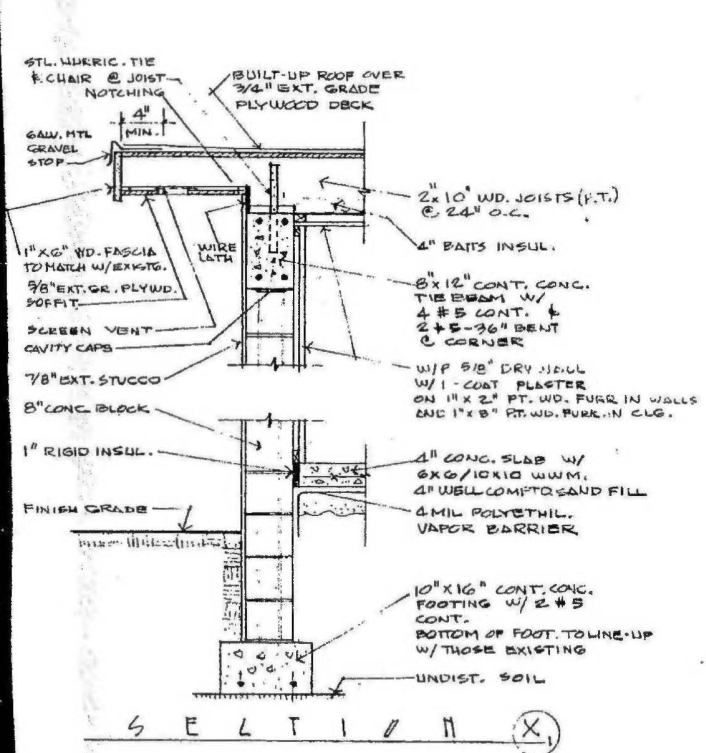 STL. HURRIC. TIE
& CHAIR @ JOIST
NOTCHING
BUILT-UP ROOF OVER
3/4" EXT. GRADE
PLYWOOD DECK
4"
MIN.
GALV. MTL
GRAVEL
STOP
2x10" WD. JOISTS (P.T.)
@ 24" O.C.
4" BATTS INSUL.
1"X6" WD. FASCIA
TO MATCH W/EXISTG.
WIRE
LATH
5/8" EXT. GR. PLYWD.
SOFFIT
SCREEN VENT
CAVITY CAPS
8"x12" CONT. CONC.
TIE BEAM W/
4 #5 CONT. &
2 #5-36" BENT
@ CORNER
7/8" EXT. STUCCO
W/P 5/8" DRY WALL
W/1-COAT PLASTER
ON 1"X2" PT. WD. FURR IN WALLS
AND 1"x3" PT. WD. FURR. IN CLG.
8" CONC. BLOCK
1" RIGID INSUL.
4" CONC. SLAB W/
6X6/10X10 WWM.
4" WELL COMPTD SAND FILL
4 MIL POLYETHIL.
VAPOR BARRIER
FINISH GRADE
10"X16" CONT. CONC.
FOOTING W/ 2 #5
CONT.
BOTTOM OF FOOT. TO LINE-UP
W/ THOSE EXISTING
UNDIST. SOIL
SECTION X1